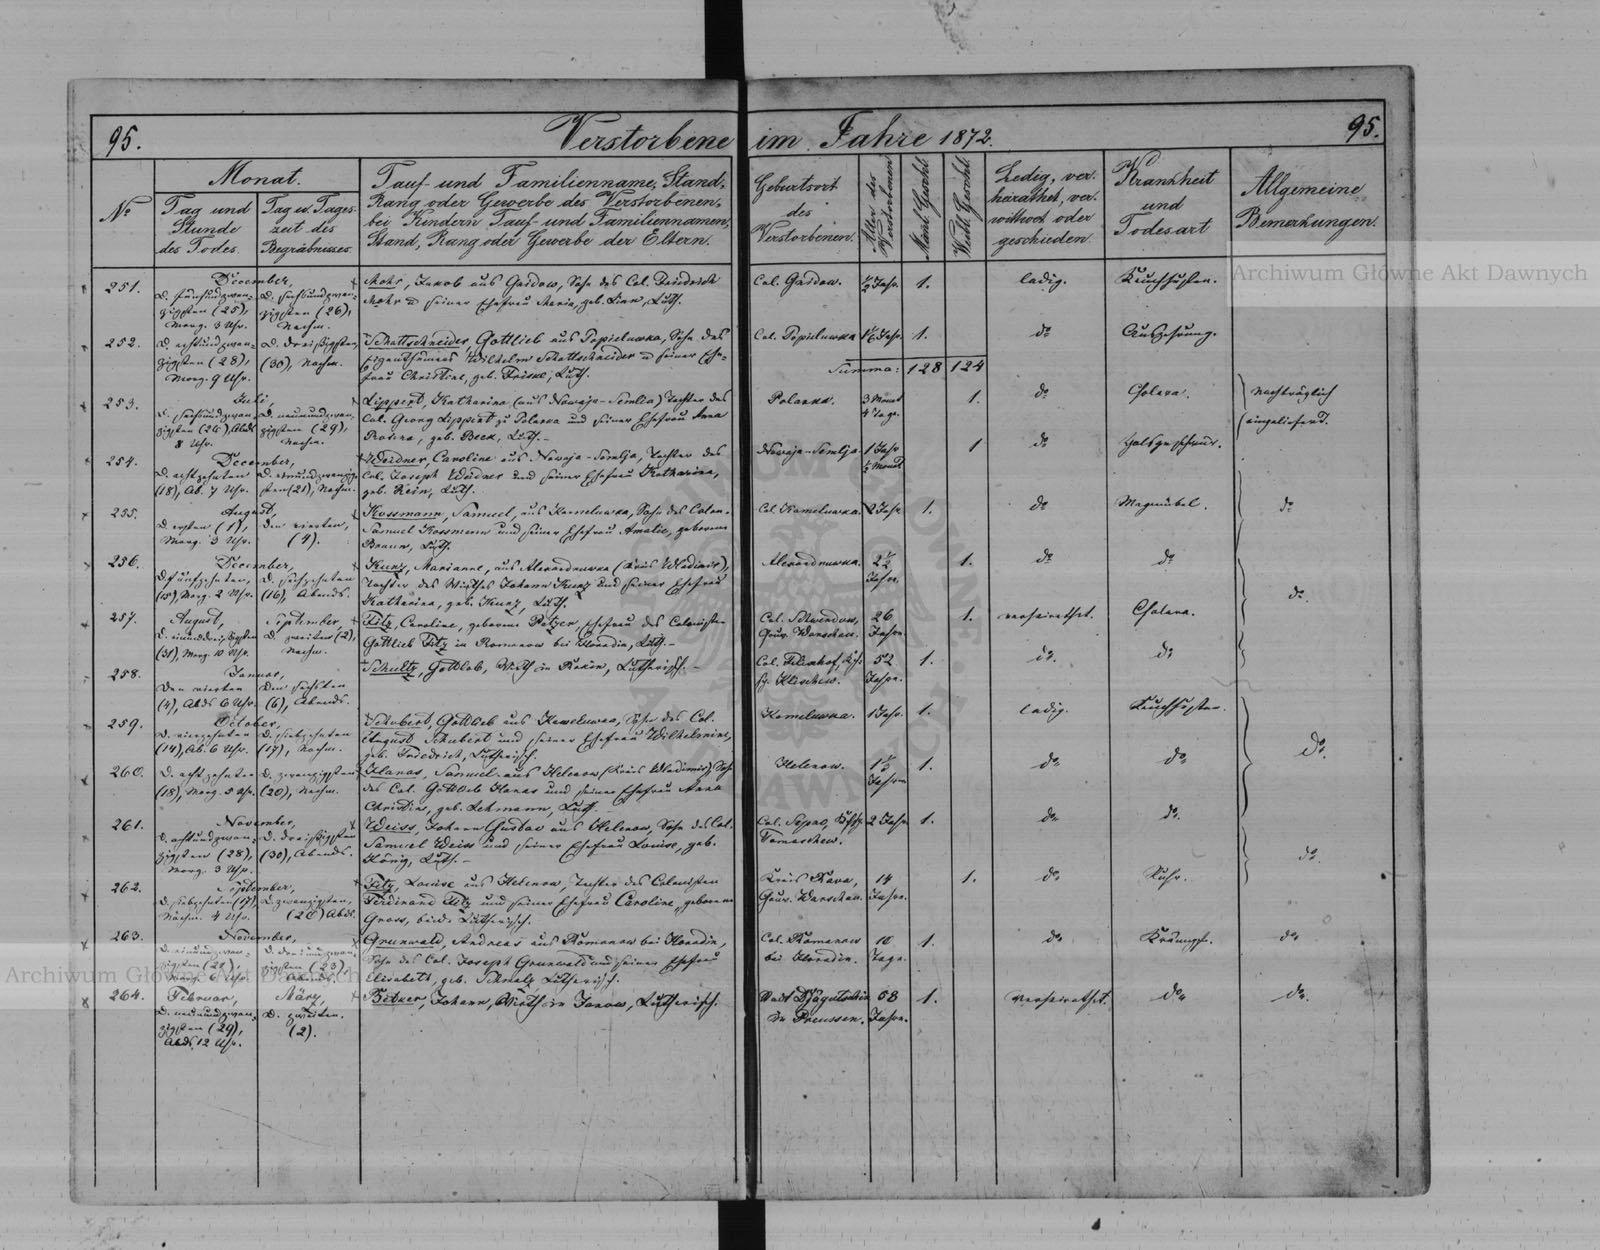 95.
Verstorbene im Jahre 1872.
95.
No
Monat.
Tag und Stunde des Todes.
Tag u. Tageszeit des Begräbnisses.
Tauf- und Familienname, Stand,
Rang oder Gewerbe des Verstorbenen,
bei Kindern Tauf- und Familiennamen,
Stand, Rang oder Gewerbe der Eltern.
Geburtsort
des
Verstorbenen.
Alter des Verstorbenen
Männl. Geschl.
Weibl. Geschl.
Ledig, ver-
heirathet, ver-
wittwet oder
geschieden.
Krankheit
und
Todesart
Allgemeine
Bemerkungen.
251.
December,
d. fünfundzwan-
zigsten (25),
Morg. 3 Uhr.
d. sechsundzwan-
zigsten (26),
Nachm.
Mohr, Jakob aus Gaidow, Sohn des Col. Friedrich
Mohr u seiner Ehefrau Maria, geb. Linn, Luth.
Col. Gaidow.
1/2 Jahr.
1.
ledig.
Keuchhusten.
252.
d. achtundzwan-
zigsten (28),
Morg. 9 Uhr.
d. dreißigsten
(30), Nachm.
Schattschneider Gottlieb aus Popieluwka, Sohn des
Eigenthümers Wilhelm Schattschneider u seiner Ehe-
frau Christine, geb. Friske, Luth.
Col. Popieluwka
1.
do
Auszehrung.
Summa: 128 124
253.
Juli,
d. sechsundzwan-
zigsten (26), Abds
8 Uhr.
d. neunundzwan-
zigsten (29),
Nachm.
Lippert, Katharina (aus Nowaja-Semlia) Tochter des
Col. Georg Lippert zu Polanka und seiner Ehefrau Anna
Rosina, geb. Beck, Luth.
Polanka.
3 Monat
4 Tage.
1.
do
Cholera.
Nachträglich
eingeliefert.
254.
December,
d. achtzehnten
(18), Ab. 7 Uhr.
d. einundzwanzig-
sten (21), Nachm.
Weidner, Caroline aus Nowaja-Semlja, Tochter des
Col. Joseph Weidner und seiner Ehefrau Katharina,
geb. Rein, Luth.
Nowaja-Semlja
1 Jahr
1
do
Halsgeschwür.
255.
August,
d. ersten (1),
Morg. 3 Uhr.
den vierten,
(4).
Kossmann, Samuel, aus Kameluwka, Sohn des Colon.
Samuel Kossmann und seiner Ehefrau Amalie, geborene
Braun, Luth.
Col. Kameluwka.
2 Jahr
1.
do
Magenübel.
do
256.
December,
d. fünfzehnten,
(15), Morg. 2 Uhr.
d. sechzehnten
(16), Abends.
Kunz, Marianne, aus Alexandruwka (Kreis Wladimir),
Tochter des Wirthes Johann Kunz und seiner Ehefrau
Katharina, geb. Kunz, Luth.
Alexandruwka.
2 1/2
Jahre.
1.
do
do
do.
257.
August,
d. einunddreißigsten
(31), Morg. 10 Uhr.
September,
d. zweiten (2),
Nachm.
Fitz, Caroline, geborene Patzer, Ehefrau des Colonisten
Gottlieb Fitz in Romanow bei Horodin, Luth.
Gouv. Warschau.
26
Jahre.
1.
verheirathet.
Cholera.
258.
Januar,
den vierten
(4), Abds 6 Uhr.
den sechsten
(6), Abends.
Schultz, Gottlob, Wirth in Rokin, Lutherisch.
52
Jahre.
1.
do.
do
259.
October,
d. vierzehnten
(14), Ab. 6 Uhr.
d. siebzehnten
(17), Nachm.
Schubert, Gottlieb aus Kameluwka, Sohn des Col.
August Schubert und seiner Ehefrau Wilhelmine,
geb. Friedrich, Lutherisch.
Kameluwka.
1 Jahr.
1.
ledig.
Keuchhusten.
260.
d. achtzehnten
(18), Morg. 5 Uhr.
d. zwanzigsten
(20), Nachm.
Hanas, Samuel aus Helenow (Kreis Wladimir), Sohn
des Col. Gottlieb Hanas und seiner Ehefrau Anna
Christine, geb. Lehmann, Luth.
Helenow.
1 1/2
Jahren
1.
do
do
do.
261.
November,
d. achtundzwan-
zigsten (28),
Morg. 3 Uhr.
d. dreißigsten
(30), Abends.
Weiss, Johann Gustav aus Helenow, Sohn des Col.
Samuel Weiss und seiner Ehefrau Louise, geb.
König, Luth.
Tomaschew.
2 Jahre
1.
do
do.
262.
September,
d. siebzehnten (17),
Nachm. 4 Uhr.
d. zwanzigsten,
(20) Abds.
Fitz, Louise aus Helenow, Tochter des Colonisten
Ferdinand Fitz und seiner Ehefrau Caroline, geborene
Gross, beide Lutherisch.
Kreis Rawa,
Gouv. Warschau.
14
Jahre.
1.
do
Ruhr.
do.
263.
November,
d. einundzwan-
zigsten (21),
Morg. 6 Uhr.
d. dreiundzwan-
zigsten (23),
Abends.
Grunwald, Andreas aus Romanow bei Horodin,
Sohn des Col. Joseph Grunwald und seiner Ehefrau
Elisabeth, geb. Schmalz Lutherisch.
Col. Romanow
bei Horodin.
10
Tage.
1.
do
Krämpfe.
do
264.
Februar,
d. neunundzwan-
zigsten (29),
Abds. 12 Uhr.
März,
d. zweiten.
(2).
Betker, Johann, Wirth in Janow, Lutherisch.
in Preussen.
58
Jahre.
1.
verheirathet.
do
do.
Archiwum Główne Akt Dawnych
Archiwum Główne Akt Dawnych